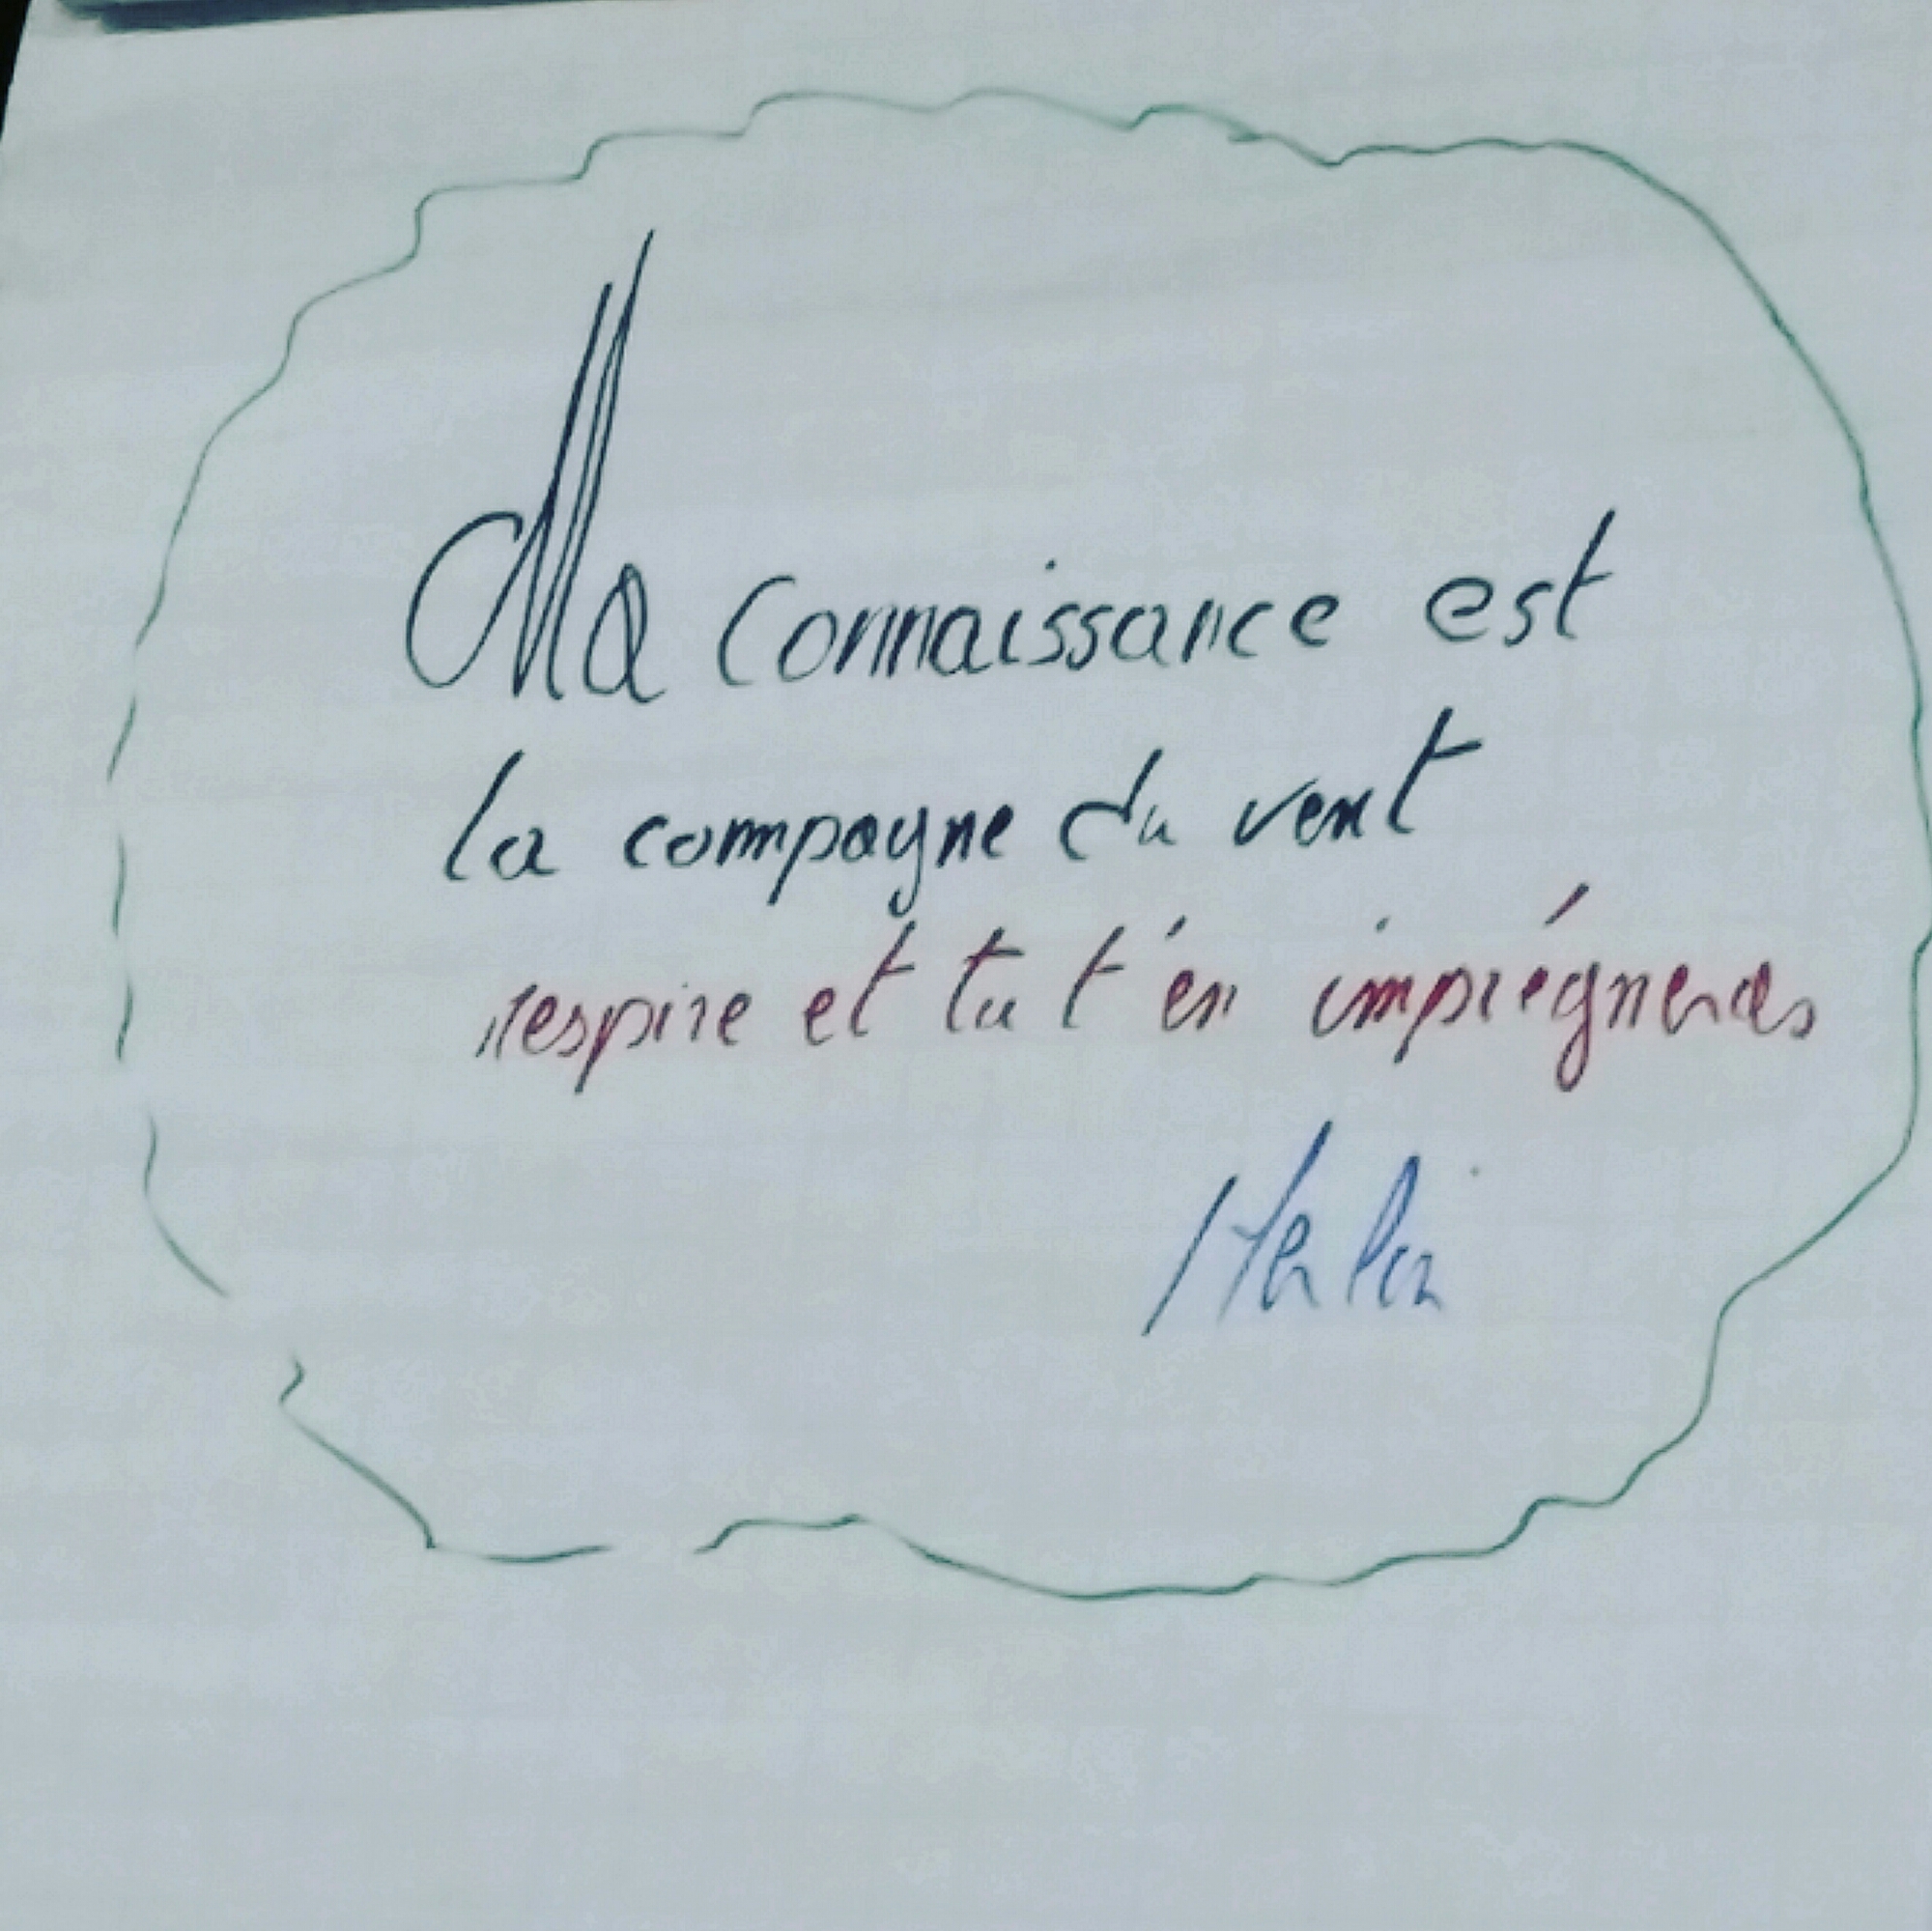 Ma connaissance est
la compagne du vent
respire et tu t'en imprégneras
Merlin